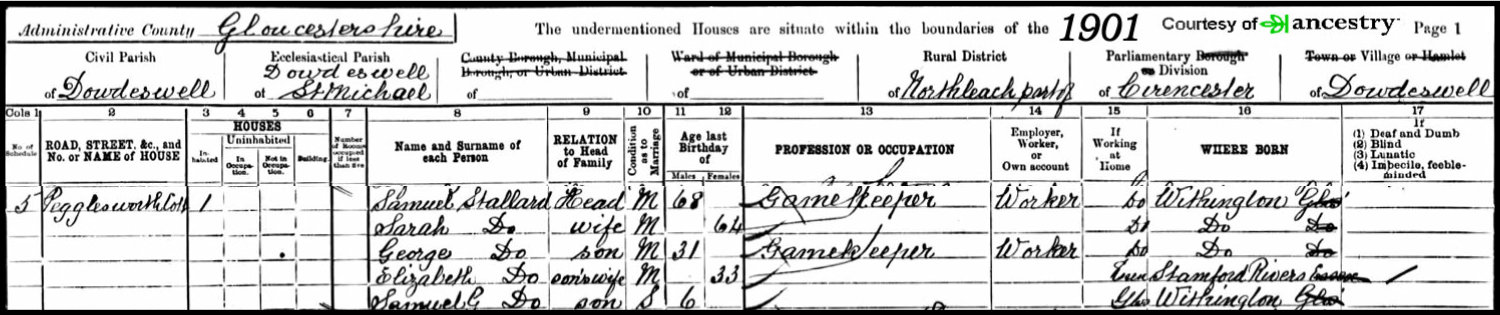 Administrative County Gloucestershire The undermentioned Houses are situate within the boundaries of the 1901 Courtesy of ancestry Page 1
Civil Parish Ecclesiastical Parish County Borough, Municipal Borough, or Urban District Ward of Municipal Borough or of Urban District Rural District Parliamentary Borough or Division Town or Village or Hamlet
of Dowdeswell of Dowdeswell St Michael of of of Northleach part of of Cirencester of Dowdeswell
Cols 1 2 3 4 5 6 7 8 9 10 11 12 13 14 15 16 17
No. of Schedule ROAD, STREET, &c., and No. or NAME of HOUSE HOUSES Inhabited Uninhabited In Occupation. Not in Occupation. Building. Number of Rooms occupied if less than five Name and Surname of each Person RELATION to Head of Family Condition as to Marriage Age last Birthday of Males Females PROFESSION OR OCCUPATION Employer, Worker, or Own account If Working at Home WHERE BORN If (1) Deaf and Dumb (2) Blind (3) Lunatic (4) Imbecile, feeble-minded
5 Pegglesworth 1 Samuel Stallard Head M 68 Gamekeeper Worker Do Withington Glos
Sarah Do wife M 64 Do Do Do
George Do son M 31 Gamekeeper Worker Do Do Do
Elizabeth Do son's wife M 33 Stamford Rivers Essex
Samuel G Do son S 6 Glos Withington Glos